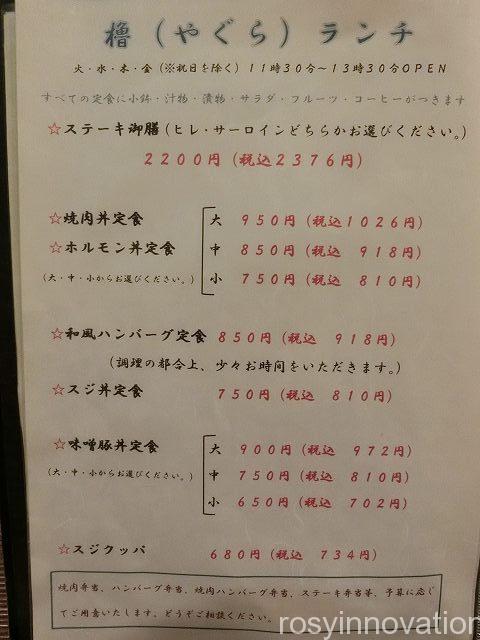 櫓（やぐら）ランチ
火・水・木・金（※祝日を除く）１１時３０分～１３時３０分ＯＰＥＮ
すべての定食に小鉢・汁物・漬物・サラダ・フルーツ・コーヒーがつきます
☆ステーキ御膳（ヒレ・サーロインどちらかお選びください。）
２２００円（税込２３７６円）
☆焼肉丼定食 大 ９５０円（税込１０２６円）
☆ホルモン丼定食 中 ８５０円（税込 ９１８円）
（大・中・小からお選びください。） 小 ７５０円（税込 ８１０円）
☆和風ハンバーグ定食 ８５０円（税込 ９１８円）
（調理の都合上、少々お時間をいただきます。）
☆スジ丼定食 ７５０円（税込 ８１０円）
☆味噌豚丼定食 大 ９００円（税込 ９７２円）
（大・中・小からお選びください。） 中 ７５０円（税込 ８１０円）
小 ６５０円（税込 ７０２円）
☆スジクッパ ６８０円（税込 ７３４円）
焼肉弁当、ハンバーグ弁当、焼肉ハンバーグ弁当、ステーキ弁当等、予算に応じ
てご用意いたします。どうぞご相談ください。
rosyinnovation